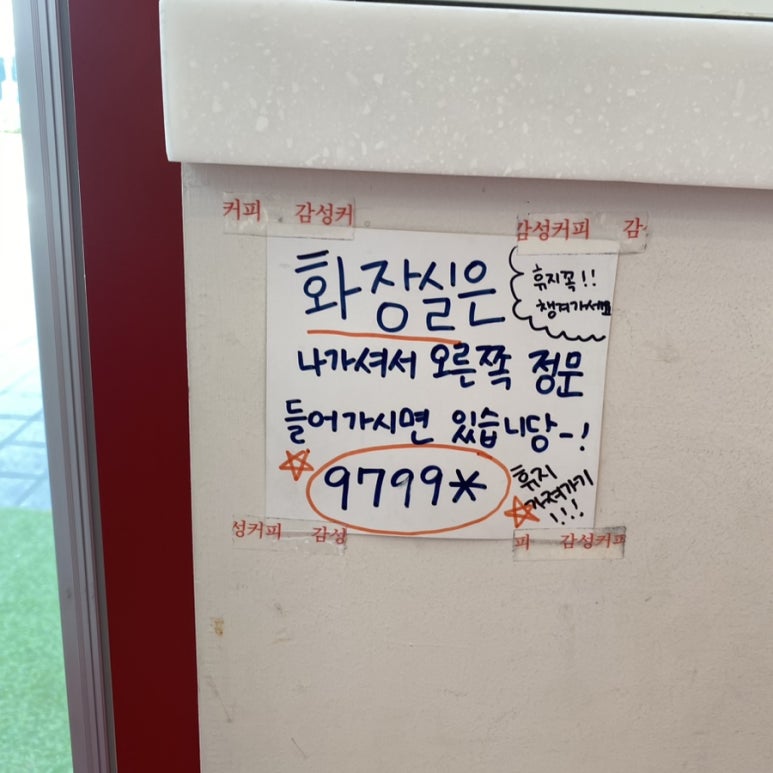 커피 감성커
감성커피 감
화장실은
휴지꼭!!
챙겨가세요
나가셔서 오른쪽 정문
들어가시면 있습니당~!
9799*
휴지
가져가기
!!!
성커피 감성
피 감성커피